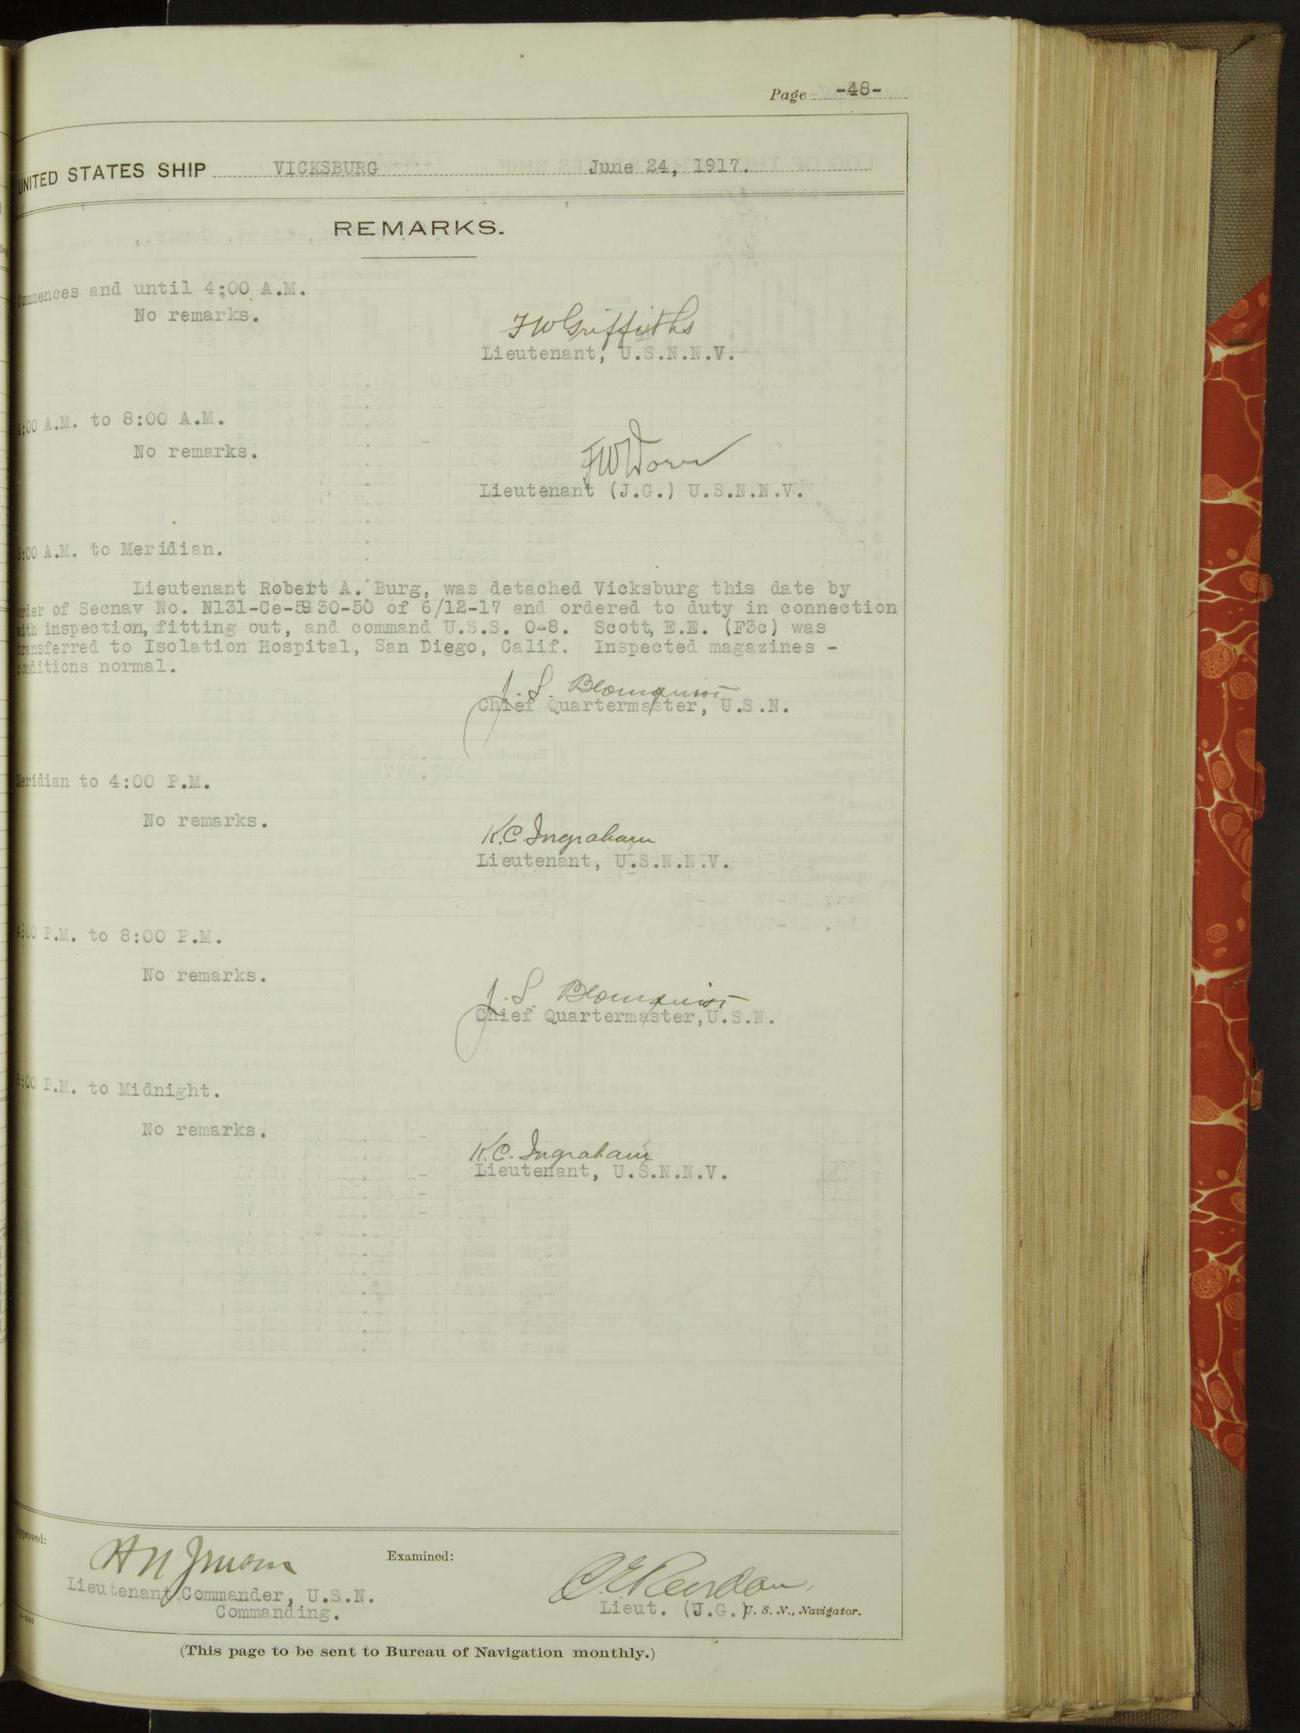 Page -48-
UNITED STATES SHIP VICKSBURG June 24, 1917.
REMARKS.
Commences and until 4:00 A.M.
No remarks.
F W Griffiths
Lieutenant, U.S.N.N.V.
4:00 A.M. to 8:00 A.M.
No remarks.
Lieutenant (J.G.) U.S.N.N.V.
8:00 A.M. to Meridian.
Lieutenant Robert A. Burg, was detached Vicksburg this date by
order of Secnav No. N131-Ce-5930-50 of 6/12-17 and ordered to duty in connection
with inspection, fitting out, and command U.S.S. O-8. Scott, E.E. (F3c) was
transferred to Isolation Hospital, San Diego, Calif. Inspected magazines -
conditions normal.
J. S. Blomquist
Chief Quartermaster, U.S.N.
Meridian to 4:00 P.M.
No remarks.
K.C. Ingraham
Lieutenant, U.S.N.N.V.
4:00 P.M. to 8:00 P.M.
No remarks.
J. S. Blomquist
Chief Quartermaster, U.S.N.
8:00 P.M. to Midnight.
No remarks.
K.C. Ingraham
Lieutenant, U.S.N.N.V.
Approved:
Examined:
Lieutenant Commander, U.S.N.
Commanding.
Lieut. (J.G.) U. S. N., Navigator.
(This page to be sent to Bureau of Navigation monthly.)